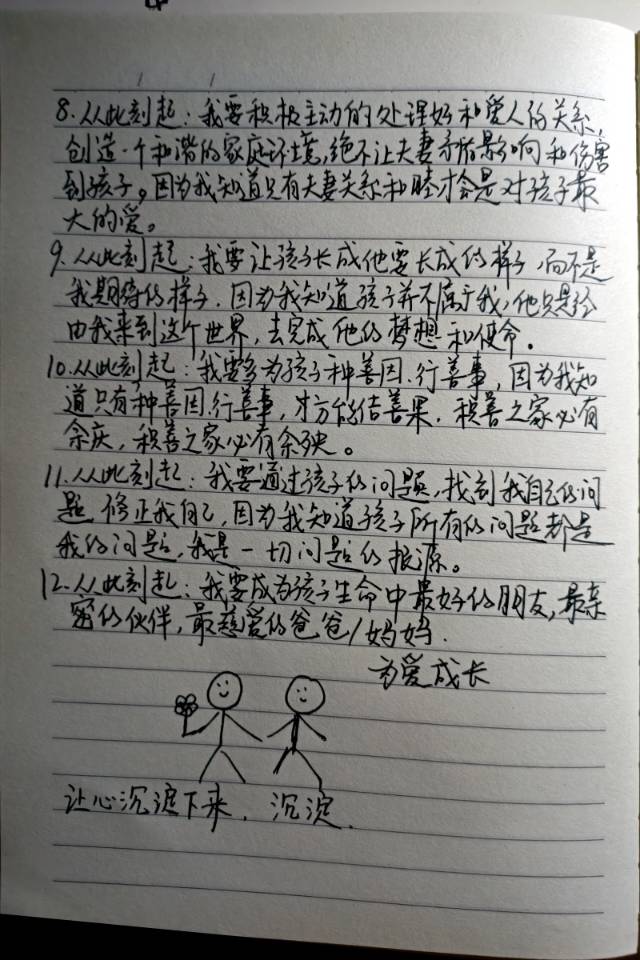 8.从此刻起:我要积极主动的处理好和爱人的关系,
创造一个和谐的家庭环境,绝不让夫妻矛盾影响和伤害
到孩子。因为我知道只有夫妻关系和睦才会是对孩子最
大的爱。
9.从此刻起:我要让孩子长成他要长成的样子,而不是
我期待的样子.因为我知道孩子并不属于我,他只是经
由我来到这个世界,去完成他的梦想和使命.
10.从此刻起:我要多为孩子种善因.行善事,因为我知
道只有种善因.行善事,才方能结善果.积善之家必有
余庆,积善之家必有余殃。
11.从此刻起:我要通过孩子的问题,找到我自己的问
题.修正我自己,因为我知道孩子所有的问题都是
我的问题,我是一切问题的根源。
12.从此刻起:我要成为孩子生命中最好的朋友,最亲
密的伙伴,最慈爱的爸爸/妈妈.
为爱成长
让心沉淀下来.沉淀.